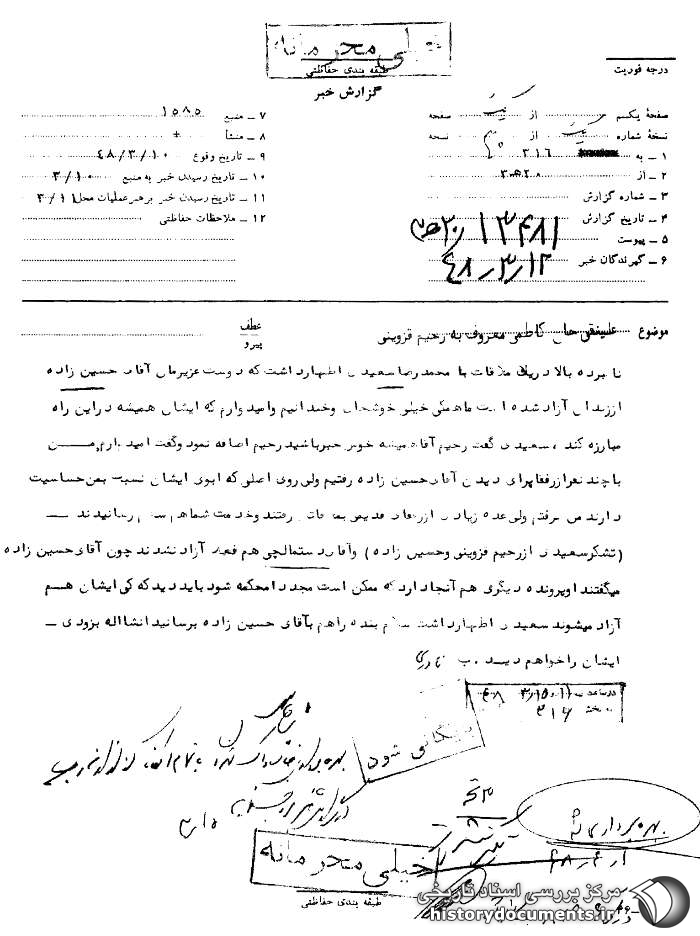 خیلی محرمانه
طبقه بندی حفاظتی
گزارش خبر
درجه فوریت
صفحهٔ یکم از یک صفحه
نسخهٔ شماره از نسخه
۱ ـ به ۳۱۶
۲ ـ از ۲۰ه۳
۳ ـ شماره گزارش
۴ ـ تاریخ گزارش
۵ ـ پیوست
۶ ـ گیرندگان خبر
۱۳۴۸۱
۴۸/۳/۱۲
۷ ـ منبع ۱۵۸۵
۸ ـ منشأ +
۹ ـ تاریخ وقوع ۴۸/۳/۱۰
۱۰ ـ تاریخ رسیدن خبر به منبع ۳/۱۰
۱۱ ـ تاریخ رسیدن خبر برهبر عملیات محل ۳/۱۱
۱۲ ـ ملاحظات حفاظتی
موضوع علینقی کاظمی معروف به رحیم قزوینی
عطف
پیرو
نامبرده بالا دریک ملاقات با محمدرضا سعیدی اظهارداشت که دوست عزیزمان آقای حسین زاده
اززندان آزاد شده است ماهمگی خیلی خوشحال وخندانیم وامیدوارم که ایشان همیشه دراین راه
مبارزه کند ، سعیدی گفت رحیم آقا همیشه خوش خبرباشید رحیم اضافه نمود وگفت امیدوارم من
باچند نفرازرفقا برای دیدن آقای حسین زاده رفتیم ولی روی اصلی که ایشان نسبت بمن حساسیت
دارند من نرفتم ولی عده زیادی ازرفقای قدیمی بملاقات رفتند وخدمت شماهم سلام رسانیدند ـ
(تشکرسعیدی ازرحیم قزوینی وحسین زاده) وآقای دستمالچی هم فعلا آزاد نشدند چون آقای حسین زاده
میگفتند اوپرونده دیگری هم آنجا دارد که ممکن است مجددا محکمه شود باید دید که کی ایشان هم
آزاد میشوند سعیدی اظهارداشت سلام بنده راهم بآقای حسین زاده برسانید انشااله بزودی ـ
ایشان راخواهم دید . ب
درساعت
به بخش ۳۱۶
بایگانی شود
بهره برداری شد
خیلی محرمانه
طبقه بندی حفاظتی
مرکز بررسی اسناد تاریخی
historydocuments.ir